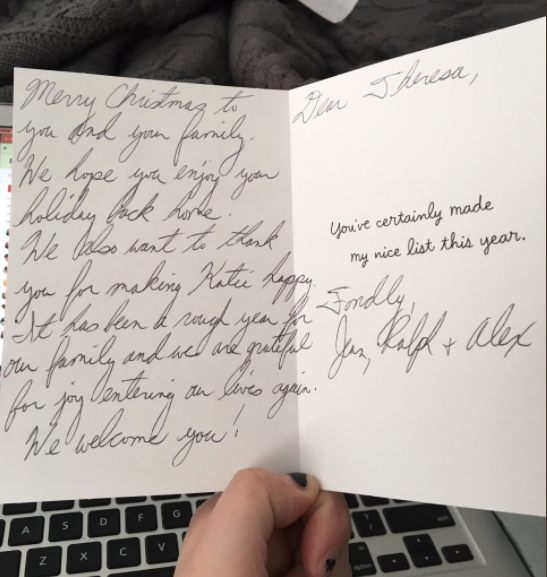 Merry Christmas to
you and your family.
We hope you enjoy your
holiday back home.
We also want to thank
you for making Katie happy.
It has been a rough year for
our family and we are grateful
for joy entering our lives again.
We welcome you!
Dear Theresa,
You've certainly made
my nice list this year.
Fondly,
Jan, Ralph + Alex
A S D F G
Z X C V
?
/
option